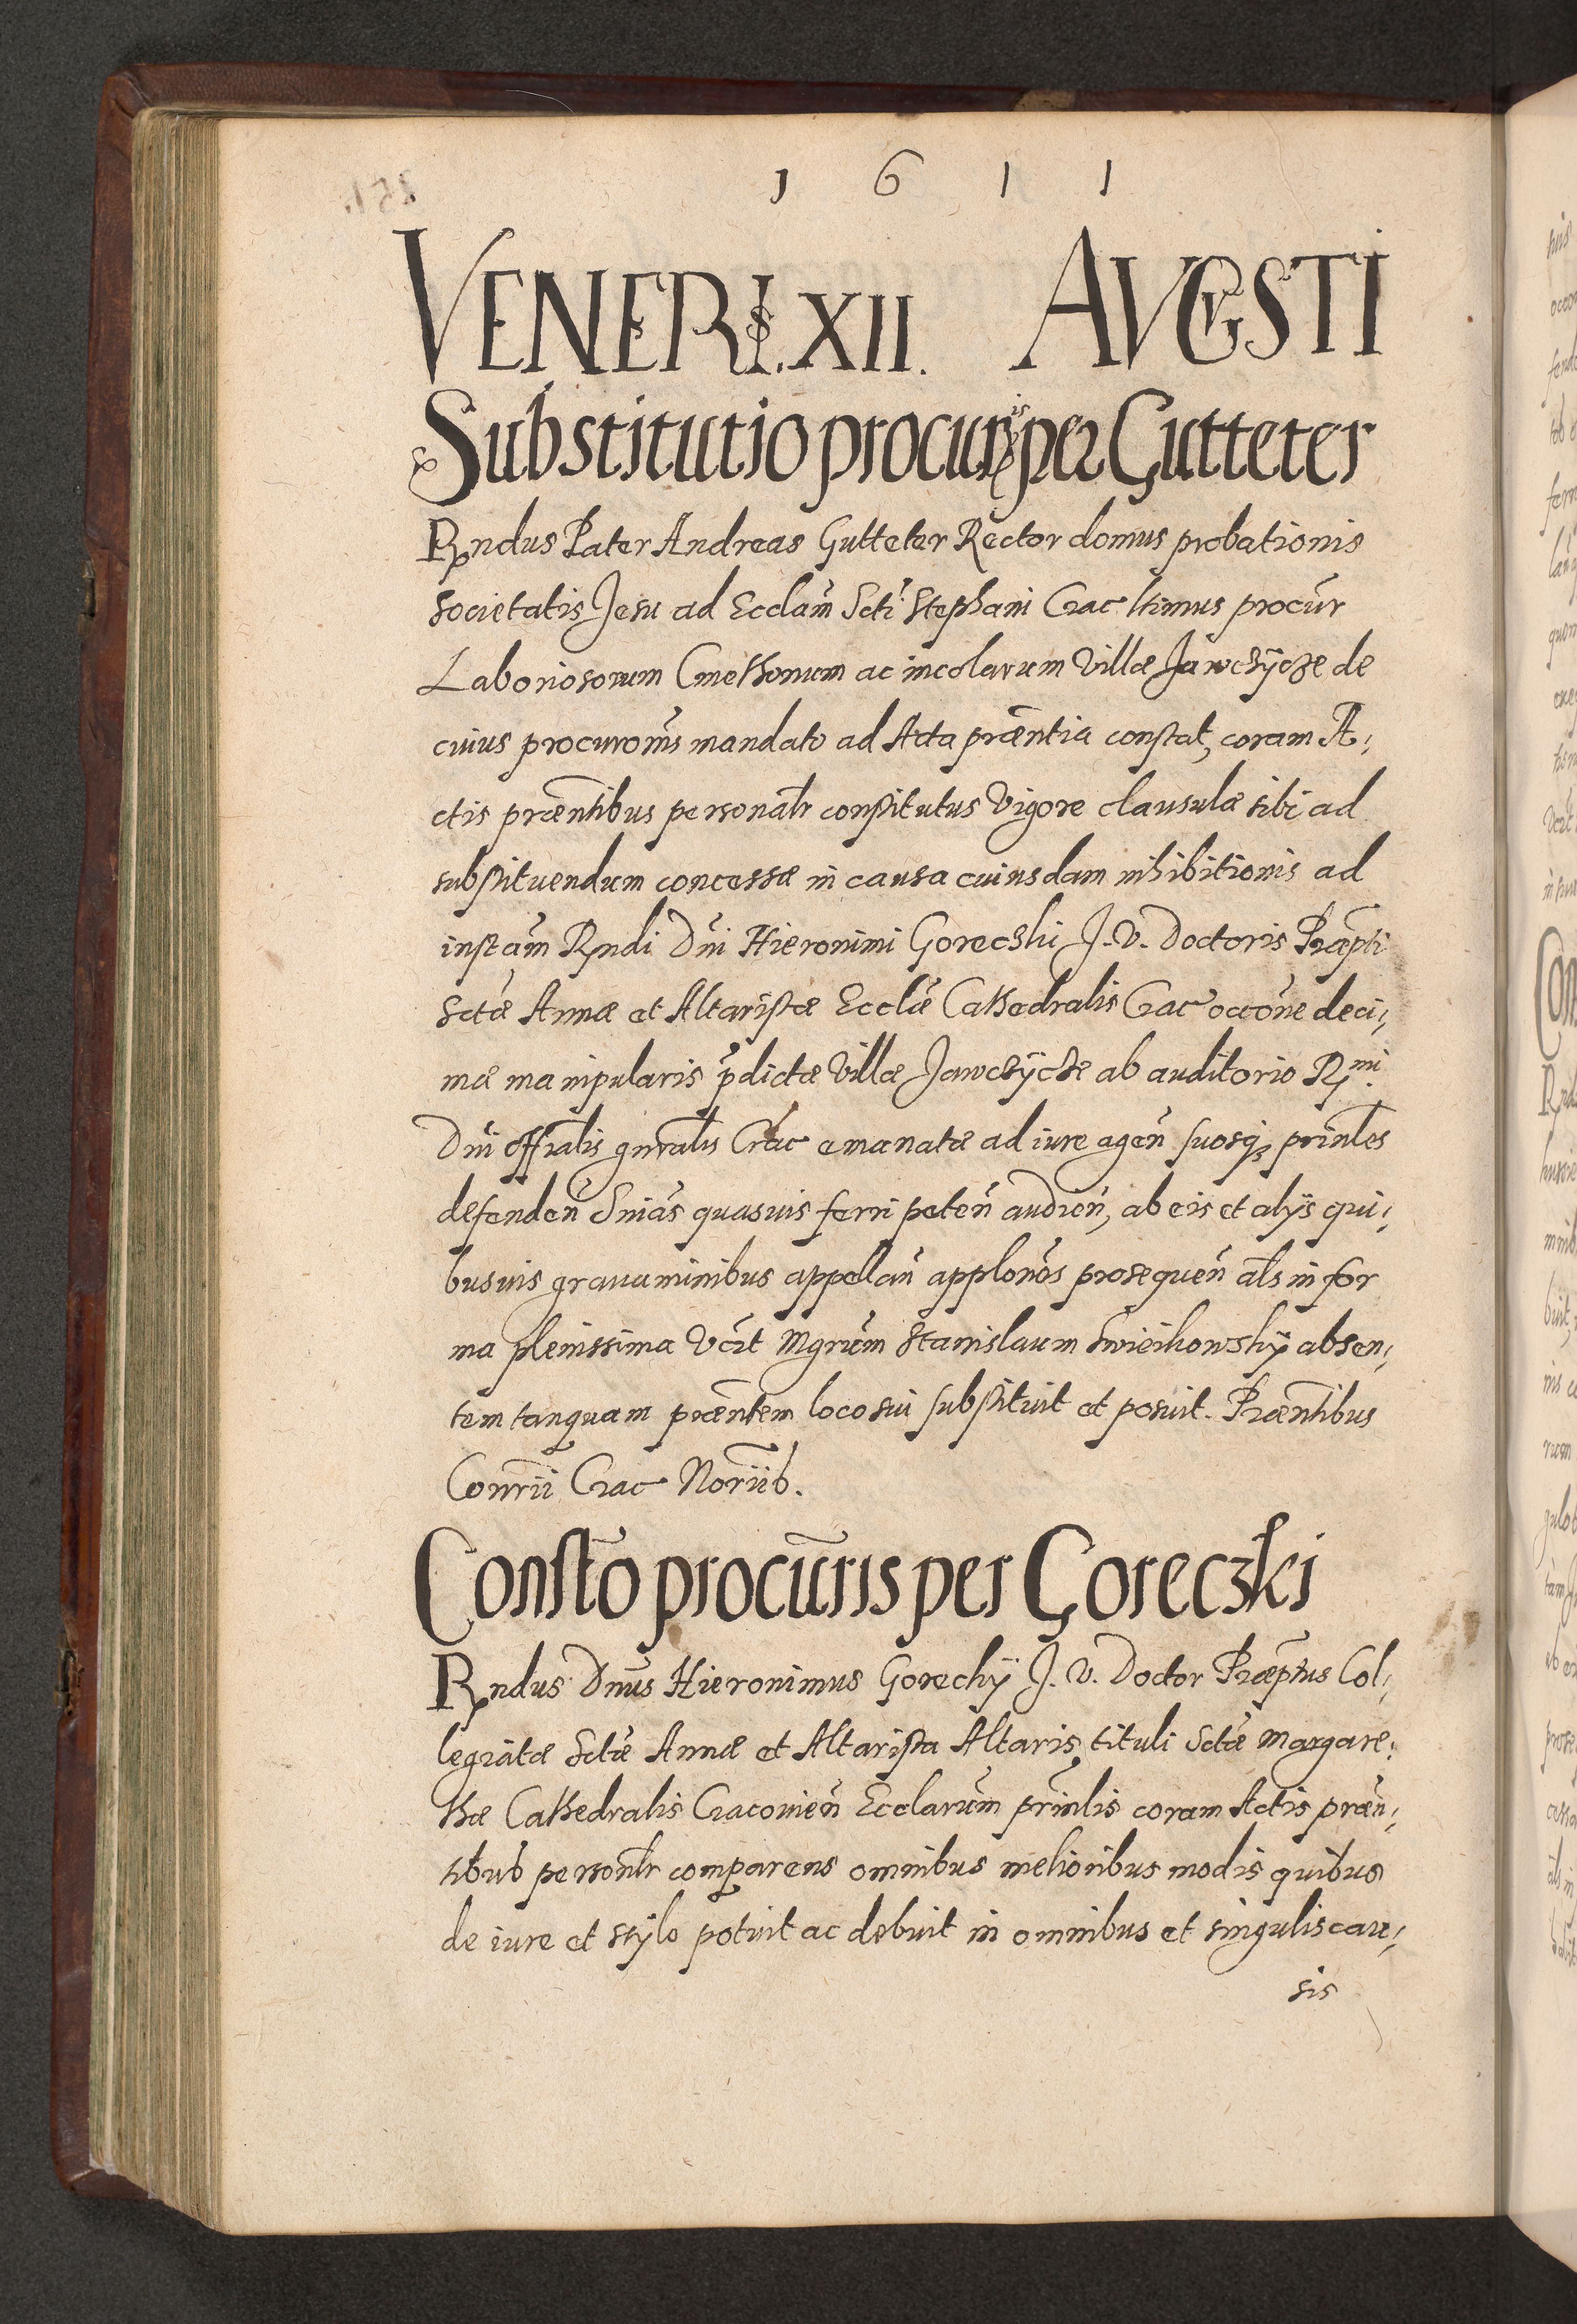 1 6 1 1
VENERIS. XII. AVGVSTI
Substitutio procuris per Gutteter
Rndus Pater Andreas Gutteter Rector domus probationis
societatis Jesu ad Ecclam̄ Scti Stephani Crac ltimus procur̄
Laboriosorum Cmethonum ac incolarum Villæ Jawczÿcze de
cuius procuronis̄ mandato ad Acta præntia constat, coram A⸗
ctis præntibus personalr constitutus Vigore clausulæ sibi ad
substituendum concessæ in causa cuiusdam inhibitionis ad
instam̄ Rndi Dni Hieronimi Goreczki J. V. Doctoris Præpti
Sctæ Annæ et Altaristæ Ecclæ Cathedralis Crac occōne deci⸗
mæ manipularis p̄dictæ Villæ Jawczÿcze ab auditorio Rmi
Dni Offialis gnralis Crac emanatæ ad iure agen̄ suosq₃ prinles
defenden̄ Snias quasuis ferri peten̄ audien̄, ab eis et alÿs qui⸗
busuis grauaminibus appellan̄ applonōs prosequen̄ als in for
ma plenissima Vērt Mgrum Stanislaum Swieikowskÿ absen⸗
tem tanquam præntem loco sui substituit et posuit. Præntibus
Conrii Crac Noriib.
Constō procūris per Goreczki
Rndus Dnus Hieronimus Gorechÿ J. V. Doctor Præptus Col⸗
legiatæ Sctæ Annæ et Altarista Altaris tituli Sctæ Margare⸗
thæ Cathedralis Cracouien̄ Ecclarum prinlis coram Actis præn⸗
tibus personlr comparens omnibus melioribus modis quibus
de iure et stÿlo potuit ac debuit in omnibus et singulis cau⸗
sis